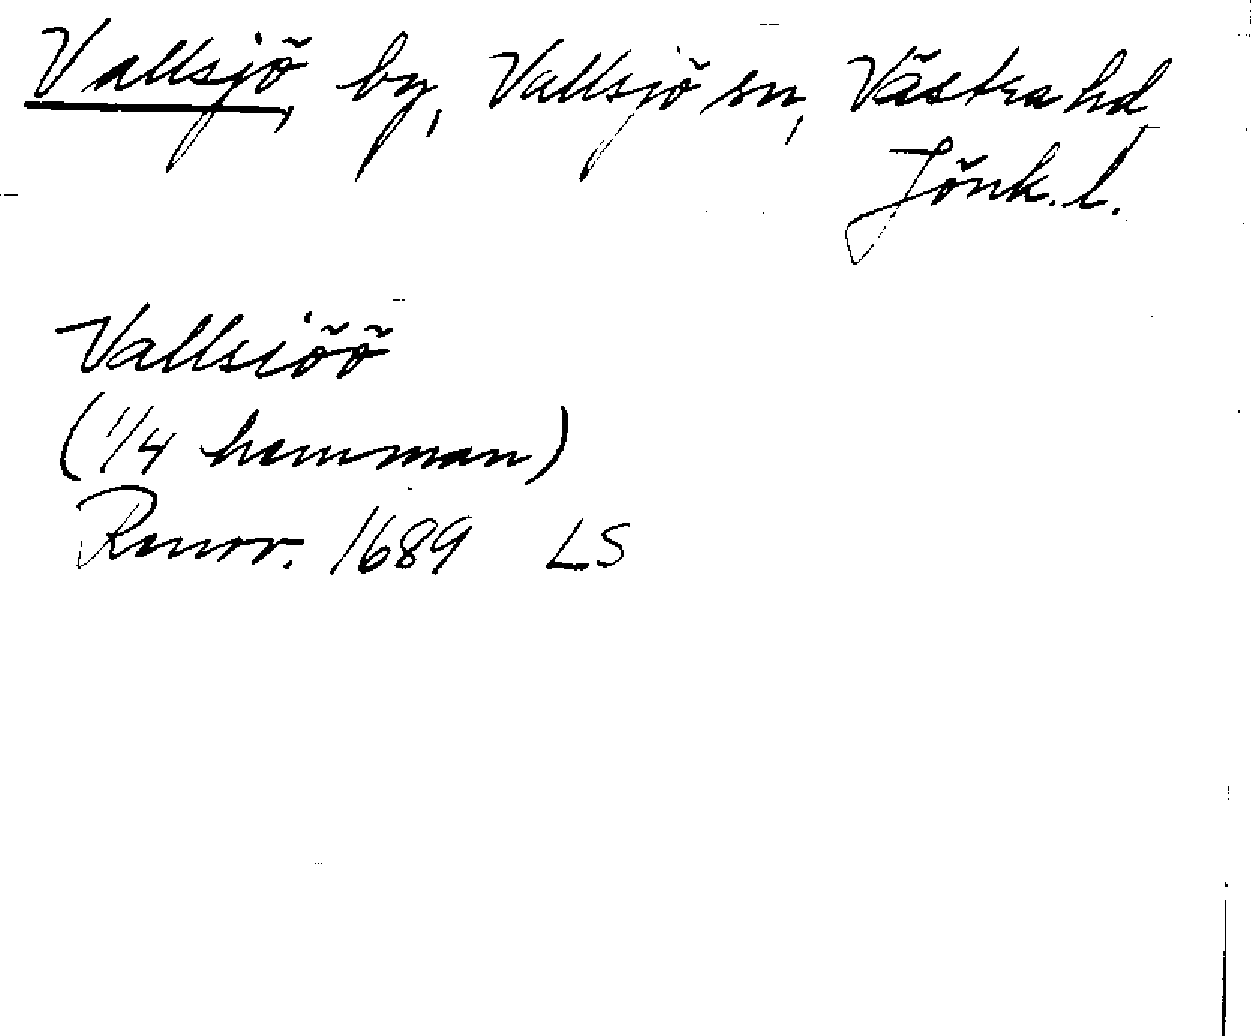 Vallsjö, by, Vallsjö sn, Västra hd
Jönk. l.
Vallsiöö
(1/4 hemman)
Renov. 1689 LS